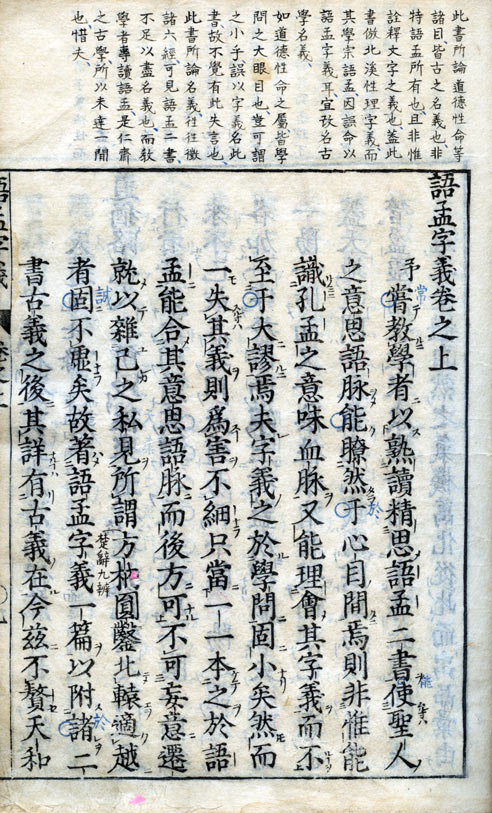 此書所論道德性命等
諸目皆古之名義也非
特語孟所有也且非惟
詮釋文字之義也蓋此
書倣北溪性理字義而
其學宗語孟因誤命以
語孟字義耳宜改名古
學名義
如道德性命之屬皆學
問之大眼目也豈可謂
之小乎誤以字義名此
書故不覺有此失言也
此書所論名義往往徵
諸六經可見語孟二書
不足以盡名義也而教
學者專讀語孟是仁齋
之古學所以未達一間
也惜夫
語孟字義卷之上
予嘗教學者以熟讀精思語孟二書使聖人
之意思語脉能瞭然于心目間焉則非惟能
識孔孟之意味血脉又能理會其字義而不
至于大謬焉夫字義之於學問固小矣然而
一失其義則爲害不細只當一一本之於語
孟能合其意思語脉而後方可不可妄意遷
就以雜己之私見所謂方枘圓鑿北轅適越
者固不虛矣故著語孟字義一篇以附諸二
書古義之後其詳有古義在今茲不贅天和
常
於
能
誠
楚辭九辨
於